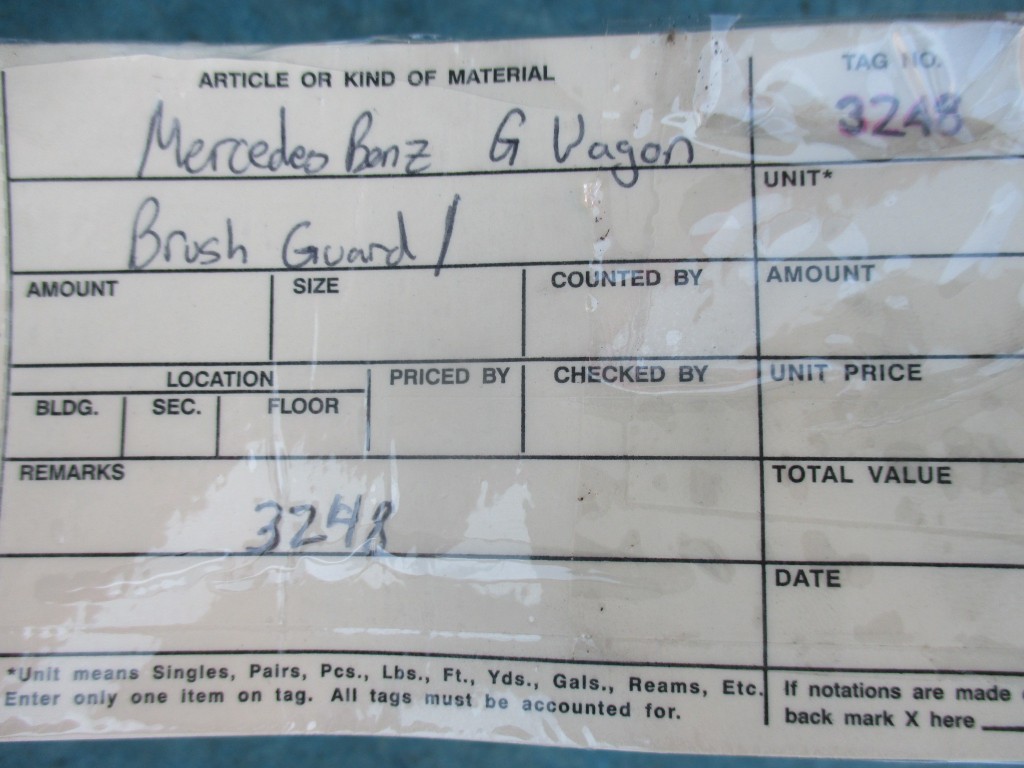 ARTICLE OR KIND OF MATERIAL
TAG NO.
Mercedes Benz G Vagon
3248
UNIT*
Brush Guard /
AMOUNT SIZE COUNTED BY AMOUNT
LOCATION PRICED BY CHECKED BY UNIT PRICE
BLDG. SEC. FLOOR
REMARKS TOTAL VALUE
3248
DATE
*Unit means Singles, Pairs, Pcs., Lbs., Ft., Yds., Gals., Reams, Etc.
Enter only one item on tag. All tags must be accounted for.
If notations are made
back mark X here